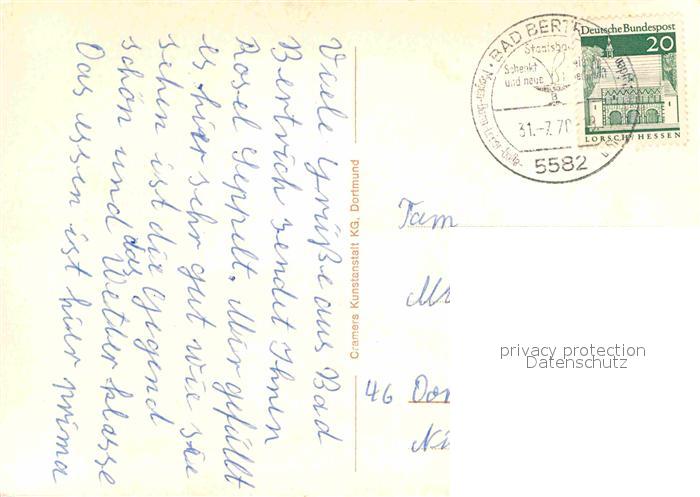 Viele Grüße aus Bad
Bertrich sendet Ihnen
Rosel Geppelt. Mir gefällt
es hier sehr gut wie sie
sehen ist die Gegend
schön und das Wetter klasse
Das essen ist hier prima
Cramers Kunstanstalt KG. Dortmund
BAD BERT
Staatsba
Schenkt
und neue
31.-7.70
5582
Deutsche Bundespost
20
LORSCH/HESSEN
Fam
46 Dor
privacy protection
Datenschutz